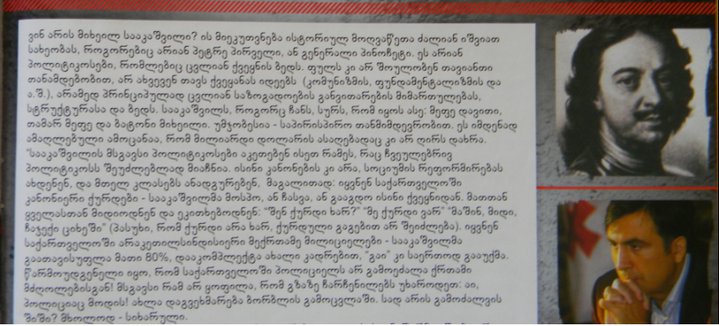 ვინ არის მიხეილ სააკაშვილი? ის მიეკუთვნება ისტორიულ მოღვაწეთა ძალიან იშვიათ
სახეობას, როგორებიც არიან პეტრე პირველი, ან გენერალი პინოჩეტი. ეს არიან
პოლიტიკოსები, რომლებიც ცვლიან ქვეყნის ბედს. ფულს კი არ შოულობენ თავიანთი
თანამდებობით, არ ახვევენ თავს ქვეყანას იდეებს (კომუნიზმის, ფუნდამენტალიზმის და
ა.შ.), არამედ პრინციპულად ცვლიან საზოგადოების განვითარების მიმართულებას,
სტრუქტურასა და ბედს. სააკაშვილს, როგორც ჩანს, სურს, რომ იყოს ასე: მეფე დავითი,
თამარ მეფე და ბატონი მიხეილი. უმჯობესია - საპირისპირო თანმიმდევრობით. ეს იმდენად
ამაღლებული ამოცანაა, რომ მილიარდი დოლარის ასაღებადაც კი არ ღირს დახრა.
"სააკაშვილის მსგავსი პოლიტიკოსები აკეთებენ ისეთ რამეს, რაც ჩვეულებრივ
პოლიტიკოსს შეუძლებლად მიაჩნია. ისინი კანონების კი არა, სოციუმის რეფორმირებას
ახდენენ, და მთელ კლასებს ანადგურებენ, მაგალითად: იყვნენ საქართველოში
კანონიერი ქურდები - სააკაშვილმა მოსპო, ან ჩასვა, ან გააგდო ისინი ქვეყნიდან. მათთან
ყველასთან მიდიოდნენ და ეკითხებოდნენ: "შენ ქურდი ხარ?" "მე ქურდი ვარ" "მაშინ, მიდი,
ჩაჯექი ციხეში" (პასუხი, რომ ქურდი არა ხარ, ქურდული გაგებით არ შეიძლება). იყვნენ
საქართველოში არაკეთილსინდისიერი მექრთამე მილიციელები - სააკაშვილმა
გაათავისუფლა მათი 80%, დააკომპლექტა ახალი კადრებით, "გაი" კი საერთოდ გააუქმა.
წარმოუდგენელი იყო, რომ საქართველოში პოლიციელს არ გამოეძალა ქრთამი
მძღოლებისგან! მსგავსი რამ არ ყოფილა, რომ გზაზე ჩარჩენილებს უხაროდეთ: აი,
პოლიციაც მოდის! ახლა დაგვეხმარება ბორბლის გამოცვლაში. სად არის გამოძალვის
შიში? მხოლოდ - სიხარული.